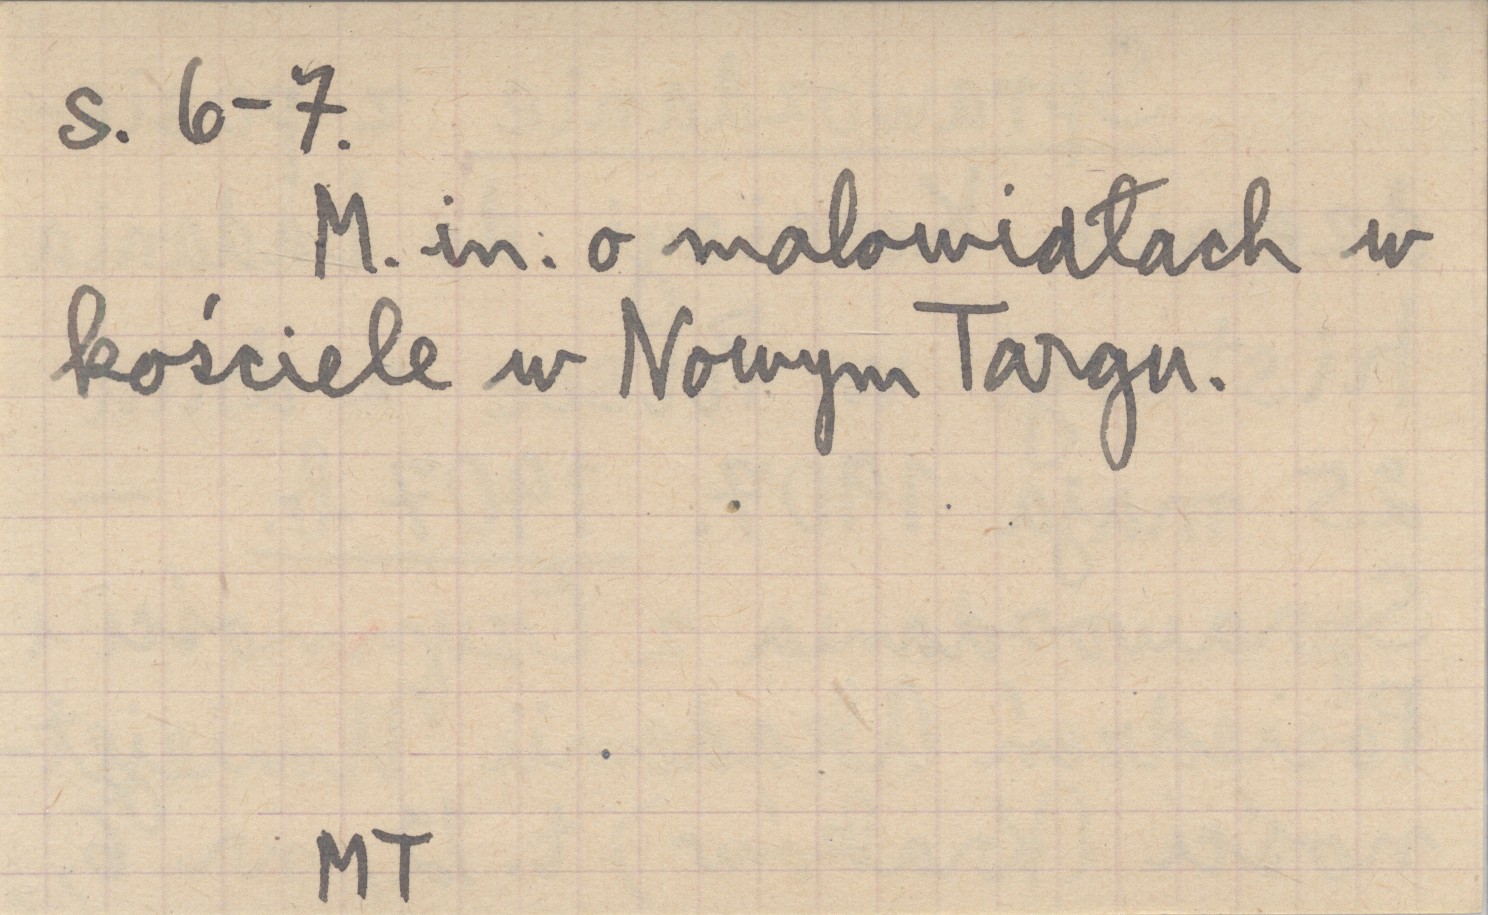 s. 6-7.
M. in. o malowidłach w
kościele w Nowym Targu.
MT